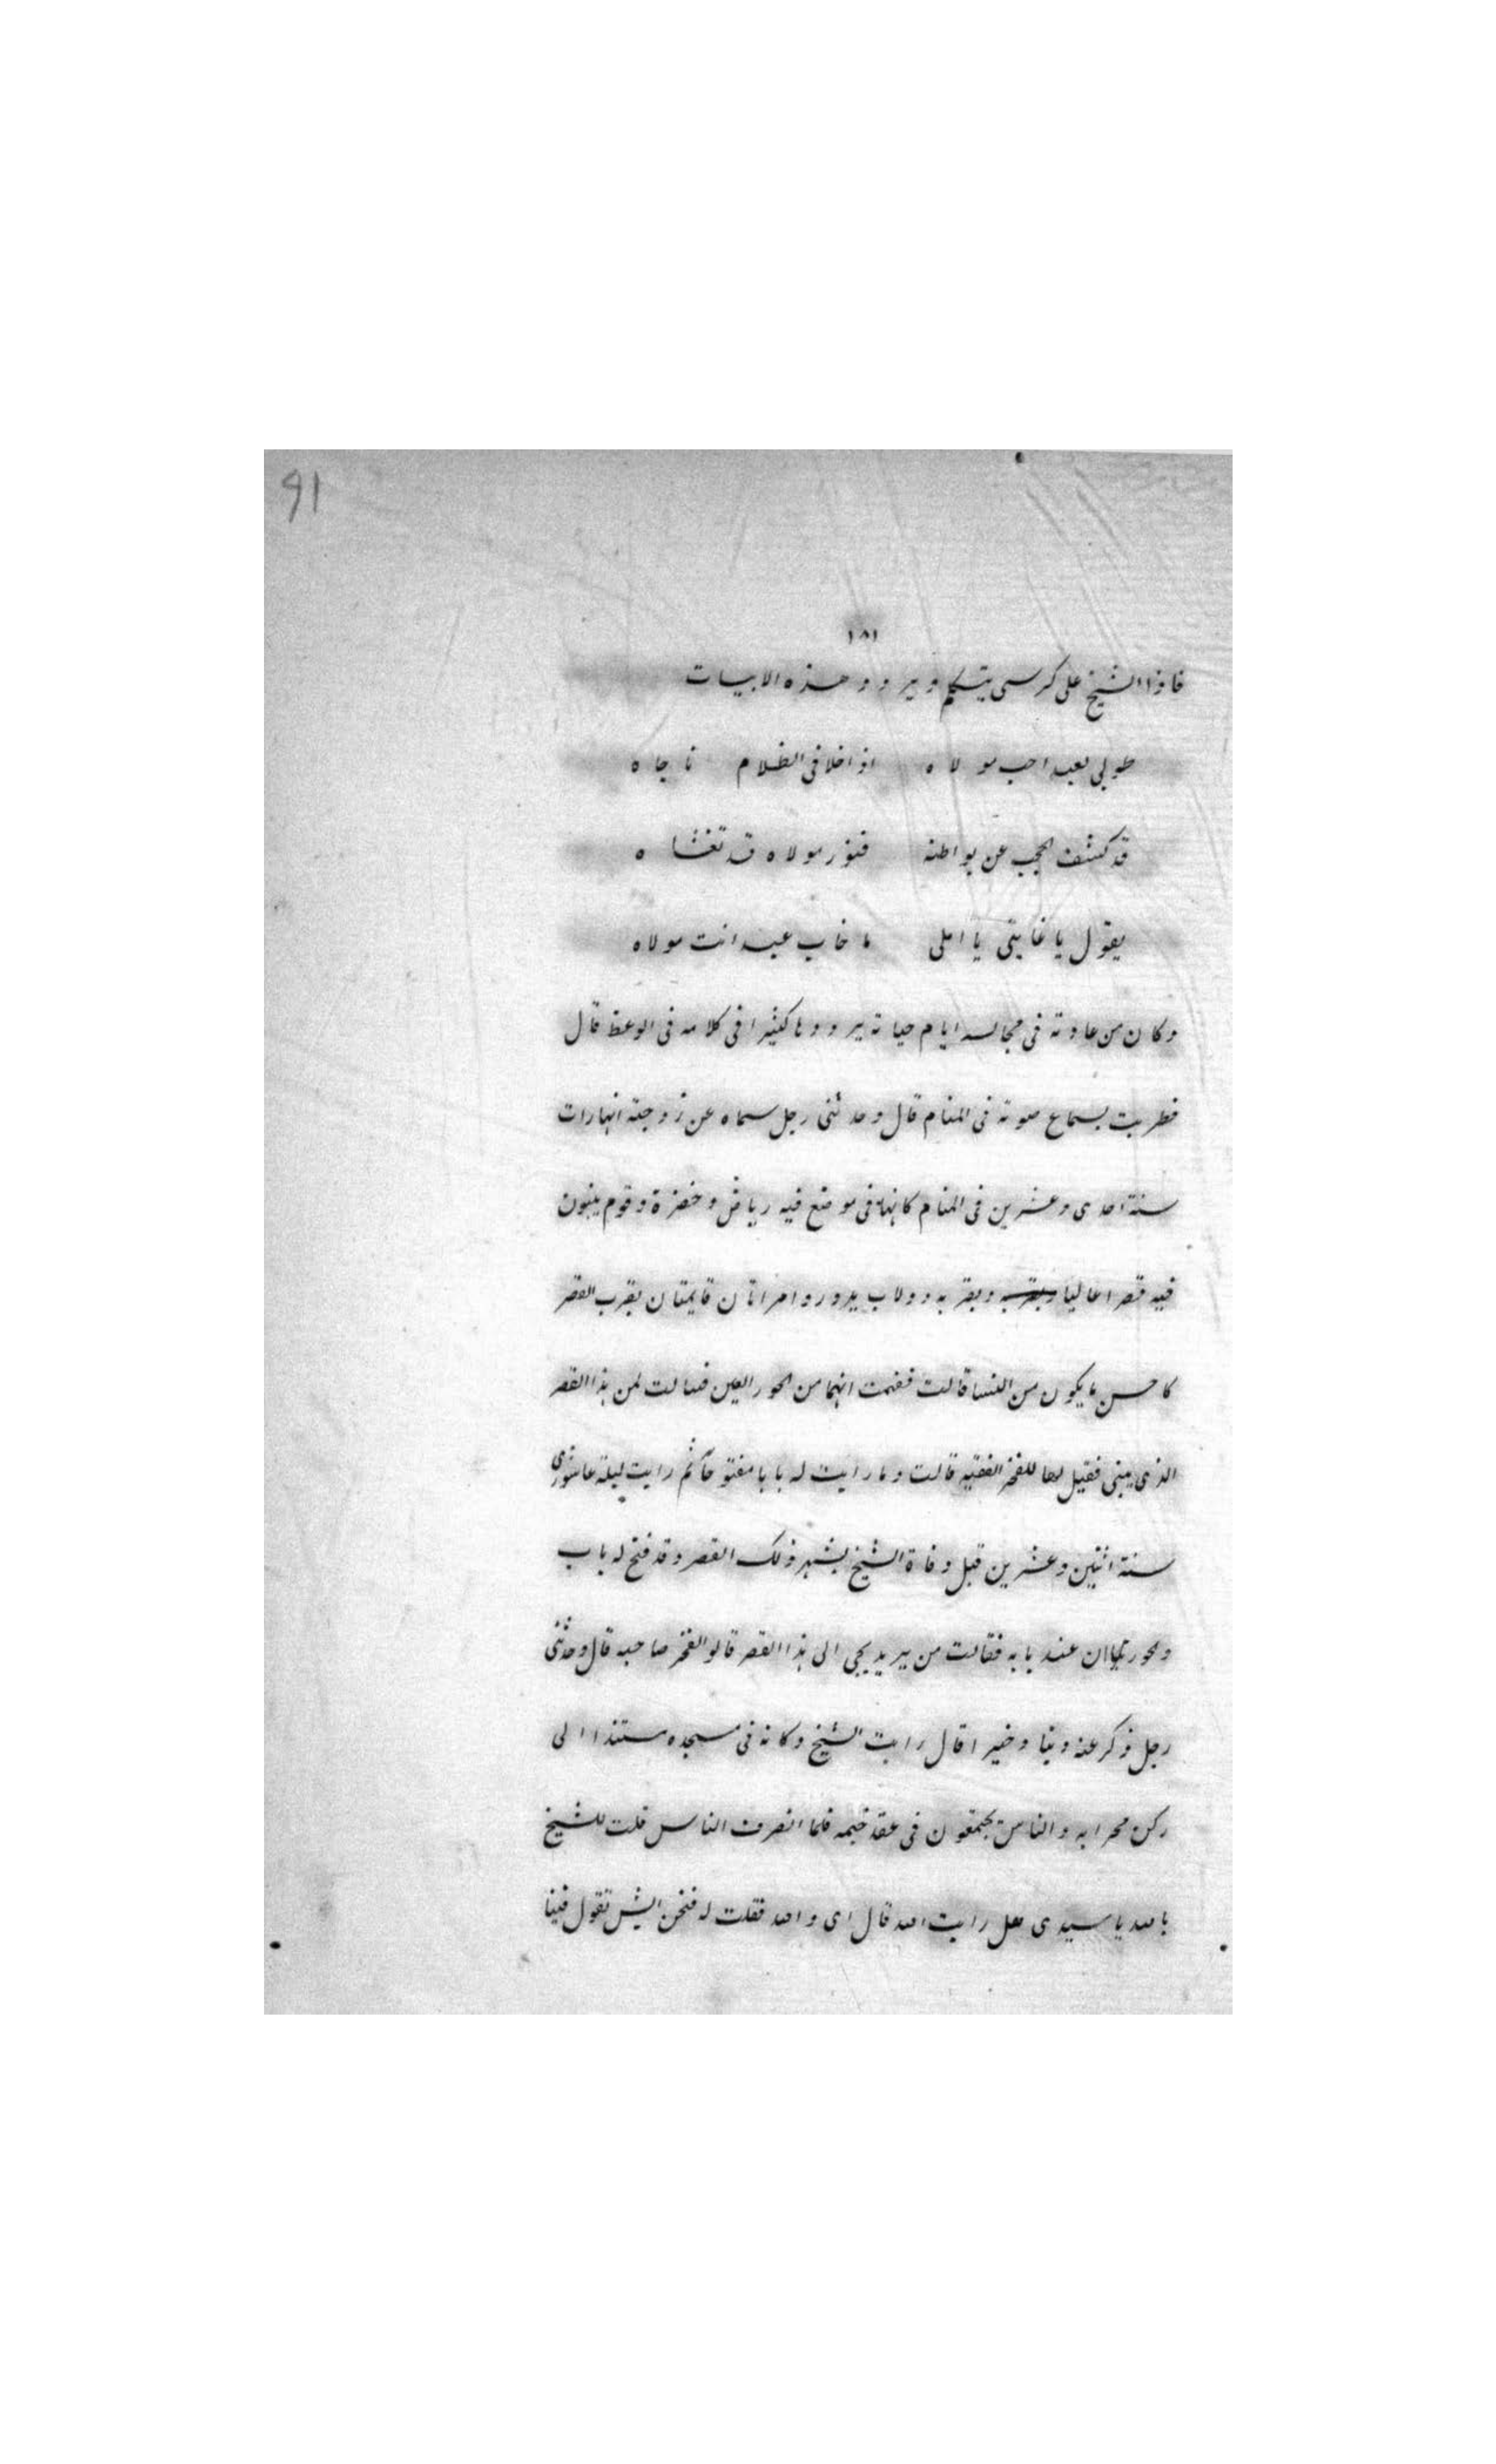 91
١٨١
فاذا الشيخ على كرسى يتكلم ويردد هذه الابيات
طوبى لعبد احب مولاه اذا خلا فى الظلام ناجاه
قد كشف الحجب عن بواطنه فنور مولاه قد تغشاه
يقول يا غايتى يا املى ما خاب عبد انت مولاه
وكان من عادته فى مجالسه ايام حياته يرددها كثيرا فى كلامه فى الوعظ قال
فطربت بسماع صوته فى المنام قال وحدثنى رجل سماه عن زوجته انها رات
سنة احدى وعشرين فى المنام كانها فى موضع فيه رياض وخضرة وقوم يبنون
فيه قصرا عاليا وبقربه وبقربه دولاب يدور وامراتان قايمتان بقرب القصر
كاحسن ما يكون من النسا قالت ففهمت انهما من الحور العين فسالت لمن هذا القصر
الذى يبنى فقيل لها للفخر الفقيه قالت وما رايت له بابا مفتوحا ثم رايت ليلة عاشورى
سنة اثنين وعشرين قبل وفاة الشيخ بشهر ذلك القصر وقد فتح له باب
والحوريتان عند بابه فقالت من يريد يجى الى هذا القصر قالوا الفخر صاحبه قال وحدثنى
رجل ذكر عنه دينا وخيرا قال رايت الشيخ وكانه فى مسجده مستندا الى
ركن محرابه والناس يجتمعون فى عقد ختمه فلما انصرف الناس قلت للشيخ
بالله يا سيدى هل رايت الله قال اى والله فقلت له فنحن ايش تقول فينا